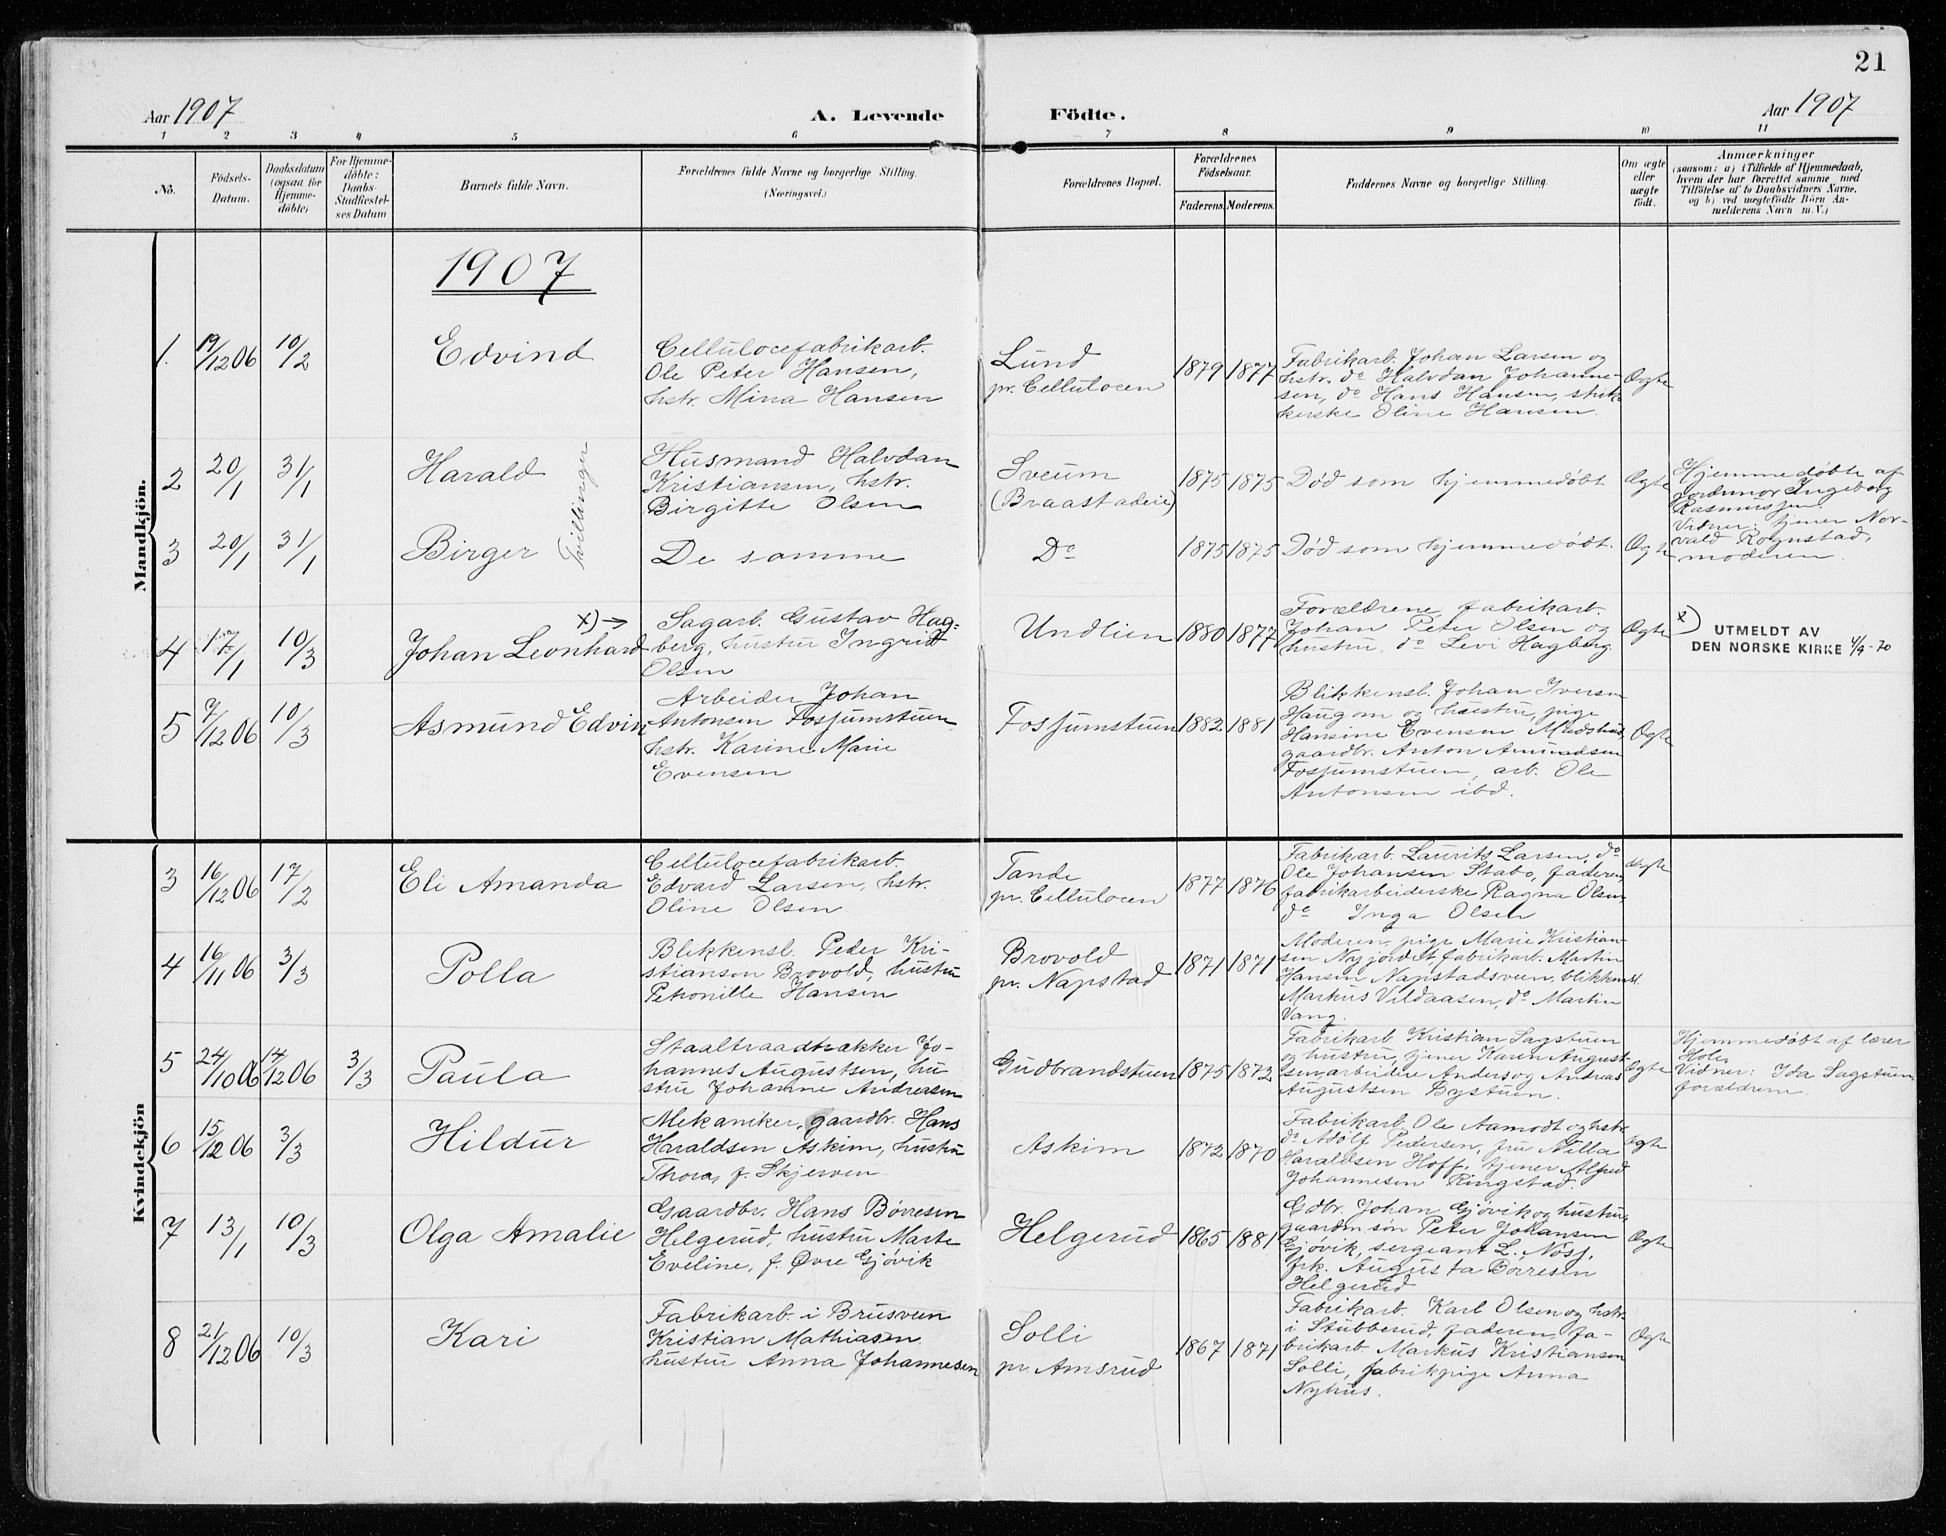 21
Aar 1907
A. Levende Födte.
Aar 1907
1 2 3 4 5 6 7 8 9 10 11
No.
Födsels-
Datum.
Daabsdatum
(ogsaa for
Hjemme-
döbte)
For Hjemme-
döbte:
Daabs-
Stadfæstel-
ses Datum
Barnets fulde Navn.
Forældrenes fulde Navne og borgerlige Stilling.
(Næringsvei.)
Forældrenes Bopæl.
Forældrenes
Födselsaar.
Faderens. Moderens.
Faddernes Navne og borgerlige Stilling.
Om ægte
eller
uægte
födt.
Anmærkninger
(saasom: a) i Tilfælde af Hjemmedaab,
hvem der har forrettet samme med
Tilföielse af to Daabsvidners Navne,
og b) ved uægtefödte Börn An-
melderens Navn m. V.)
1907
Mandkjön.
1. 19/12 06 10/2 Edvind
Cellulocefabrikarb.
Ole Peter Hansen,
hstr. Mina Hansen
Lund
pr. Cellulocen
1879 1877
Fabrikarb. Johan Larsen og
hstr. do Halvdan Johanne-
sen, do Hans Hansen, strik-
kerske Oline Hansen.
Ægte
2 20/1 31/1 Harald
Tvillinger
Husmand Halvdan
Kristiansen, hstr.
Birgitte Olsen
Sveum
(Braastadeie)
1875 1875
Død som hjemmedøbt
Ægte
Hjemmedøbte af
jordmor Ingeborg
Rasmussen
Vidner: tjener Nor-
vald Rognstad,
moderen
3 20/1 31/1 Birger
De samme
Do
1875 1875
Død som hjemmedøbt.
Ægte
4 17/1 10/3 Johan Leonhard x) →
Sagarb. Gustav Hag-
berg, hustru Ingrid
Olsen
Undlien
1880 1877
Forældrene, fabrikarb.
Johan Peter Olsen og
hustru, do Levi Hagberg.
Ægte
x)
UTMELDT AV
DEN NORSKE KIRKE 4/9-70
5 7/12 06 10/3 Asmund Edvin
Arbeider Johan
Antonsen Fosjumstuen
hstr. Karine Marie
Evensen
Fosjumstuen
1882 1881
Blikkensl. Johan Iversen
Haugom og hustru, pige
Hansine Evensen
gaardbr. Anton Amundsen
Fosjumstuen, arb. Ole
Antonsen ibd.
Ægte
Kvindekjön
3 16/12 06 17/2 Eli Amanda
Cellulocefabrikarb.
Edvard Larsen, hstr.
Oline Olsen.
Tande
pr. Cellulocen
1877 1876
Fabrikarb. Laurits Larsen, do
Ole Johansen Stabo, faderen,
fabrikarbeiderske Ragna Olsen,
do Inga Olsen
Ægte
4 16/11 06 3/3 Polla
Blikkensl. Peder Kri-
stiansen Brovold, hustru
Petronille Hansen
Brovold
pr. Napstad
1871 1871
Moderen, pige Marie Kristian-
sen Nygjordet, fabrikarb. Martin
Hansen Napstadsveen, blikkensl.
Markus Vildaasen, do Martin
Vang.
5 24/10 06 14/12 06 3/3 Paula
Staaltraadtrækker Jo-
hannes Augustsen, hu-
stru Johanne Andersen
Gudbrandstuen
1875 1872
Fabrikarb. Kristian Sagstuen
og hustru, tjener Karen August-
sen, arbeidere Anders og Andreas
Augustsen Bystuen.
Ægte
Hjemmedøbt af lærer
Hole
Vidner: Ida Sagstuen,
forældrene.
6 15/12 06 3/3 Hildur
Mekaniker, gaardbr. Hans
Haraldsen Askim, hustru
Thora, f. Skjerven
Askim
1872 1870
Fabrikarb. Ole Aamodt og hstr.
do Adolf Pedersen, fru Nilla
Haraldsen Hoff, tjener Alfred
Johannesen Ringstad.
Ægte
7 13/1 10/3 Olga Amalie
Gaardbr. Hans Børresen
Helgerud, hustru Marte
Eveline, f. Øvre Gjøvik
Helgerud
1865 1881
Gdbr. Johan Gjøvik og hustru,
gaardm.søn Peter Johansen
Gjøvik, sergeant L. Nosj,
frk. Augusta Børresen
Helgerud
Ægte
8 21/12 06 10/3 Kari
Fabrikarb. i Brusveen
Kristian Mathiasen
hustru Anna Johannesen
Solli
pr. Amsrud
1867 1871
Fabrikarb. Karl Olsen og hstr.
i Stubberud, faderen, fa-
brikarb. Markus Kristiansen
Solli, fabrikpige Anna
Nyhus.
Ægte